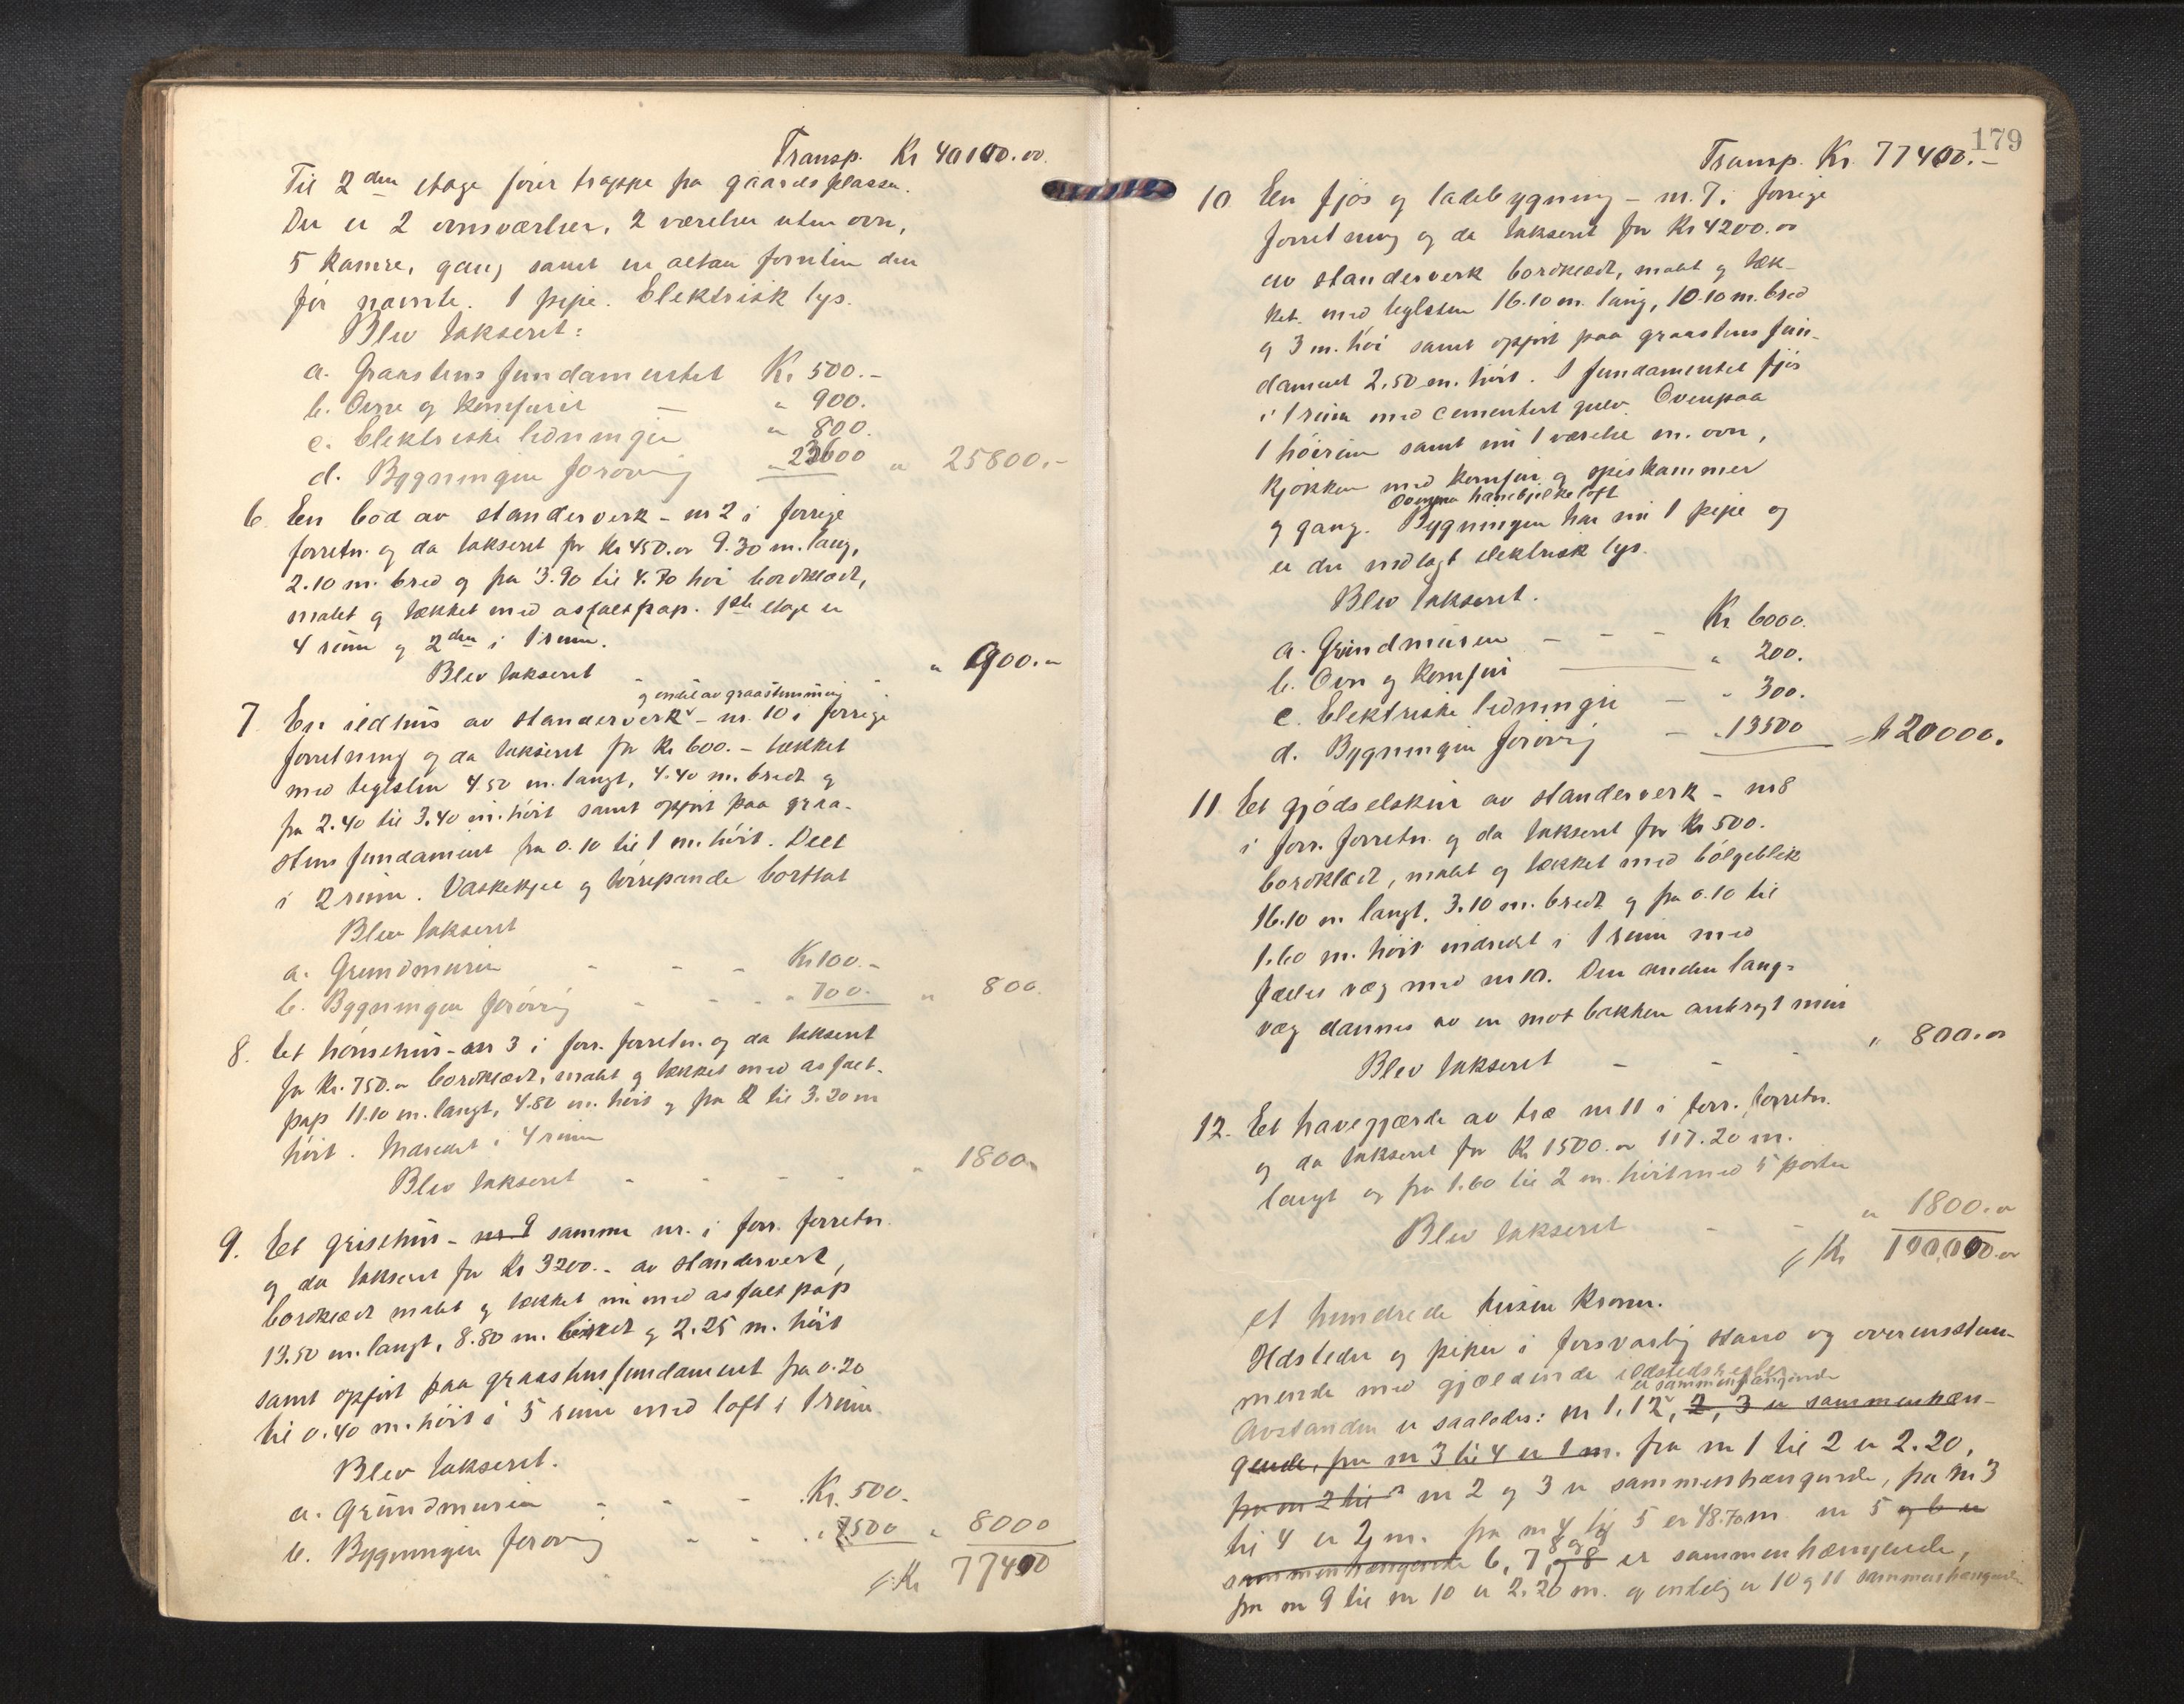 Transp. Kr 40100.00
Til 2den etage fører trappe fra gaardsplassen.
Der er 2 ovnsværelser, 2 værelser uten ovn,
5 kamre, gang samt en altan foruten den
før nævnte. 1 pipe. Elektrisk lys.
Blev takseret:
a. Graastens fundamentet Kr 500.-
b. Ovne og komfurer — " 900.
c. Elektriske ledninger " 800.
d. Bygningen forøvrig " 23600 " 25800.-
6. En bod av standerverk - nr 2 i forrige
forretn. og da takseret for Kr 450.00 9.30 m. lang,
2.10 m. bred og fra 3.90 til 4.70 høi bordklædt,
malet og tækket med asfaltpap. 1ste etage er
4 rum og 2den i 1 rum.
Blev takseret - - " 900.-
og endel av graastensmur
7. En ildhus av standerverk - nr. 10 i forrige
forretning og da takseret for Kr 600.- tækket
med teglsten 4.50 m. langt, 4.40 m. bredt og
fra 2.40 til 3.40 m. høit samt opført paa graa-
stens fundament fra 0.10 til 1 m. høit. Delt
i 2 rum. Vaskekjel og tørrepande borttat
Blev takseret
a. Grundmuren - - - Kr 100.-
b. Bygningen forøvrig - - - " 700.- " 800.
8. Et hønsehus - nr 3 i forr. forretn. og da takseret
for Kr. 750.00 bordklædt, malet og tækket med asfalt-
pap 11.10 m. langt, 4.80 m. høit og fra 2 til 3.20 m
høit. Indredet i 4 rum
Blev takseret - - - - " 1800.-
9. Et grisehus - nr 9 samme nr. i forr. forretn.
og da takseret for Kr 3200.- av standerverk,
bordklædt malet og tækket nu med asfaltpap
13.50 m. langt, 8.80 m. bredt og 2.25 m. høit
samt opført paa graastensfundament fra 0.20
til 0.40 m. høit i 5 rum med loft i 1 rum
Blev takseret.
a. Grundmuren - - - Kr. 500.-
b. Bygningen forøvrig - - - " 7500 " 8000
Kr 77400
179
Transp. Kr. 77400.-
10 En fjøs og ladebygning - nr. 7 i forrige
forretning og da takseret for Kr 4200.00
av standerverk bordklædt, malet og tæk-
ket med teglsten 16.10 m. lang, 10.10 m. bred
og 3 m. høi samt opført paa graastens fun-
dament 2.50 m. høit. I fundamentet fjøs
i 1 rum med cementert gulv. Ovenpaa
1 høirum samt nu 1 værelse m. ovn,
kjøkken med komfur og spiskammer
Ovenpaa hanebjelkeloft
og gang. Bygningen har nu 1 pipe og
er der indlagt elektrisk lys.
Blev takseret.
a. Grundmuren - - - Kr. 6000.
b. Ovn og komfur — " 200.
c. Elektriske ledninger - " 300.
d. Bygningen forøvrig - " 13500 = " 20000.
11 Et gjødselskur av standerverk - nr 8
i forr. forretn. og da takseret for Kr 500.
bordklædt, malet og tækket med bølgeblik
16.10 m. langt, 3.10 m. bredt og fra 0.10 til
1.60 m. høit indredet i 1 rum med
fælles væg med nr 10. Den anden lang-
væg dannes av en mot bakken anbragt mur
Blev takseret - - - " 800.00
12. Et havegjærde av træ nr 11 i forr. forretn.
og da takseret for Kr 1500.00 117.20 m.
langt og fra 1.60 til 2 m. høit med 5 porter
Blev takseret - - " 1800.00
Kr 100,000.00
et hundrede tusen kroner.
Ildsteder og piper i forsvarlig stand og overensstem-
mende med gjældende ildstedsregler
er sammenhængende
Avstanden er saaledes: nr 1, 12, 2, 3 er sammenhæn-
gende, fra nr 3 til 4 er 1 m. fra nr 1 til 2 er 2.20,
fra nr 2 til nr 2 og 3 er sammenhængende, fra nr 3
til 4 er 2 m. fra nr 4 til 5 er 48.70 m nr 5 og 6 er
8 og 9
sammenhængende 6, 7, og 8 er sammenhængende,
fra nr 9 til nr 10 er 2.20 m. og endelig er 10 og 11 sammenhængende